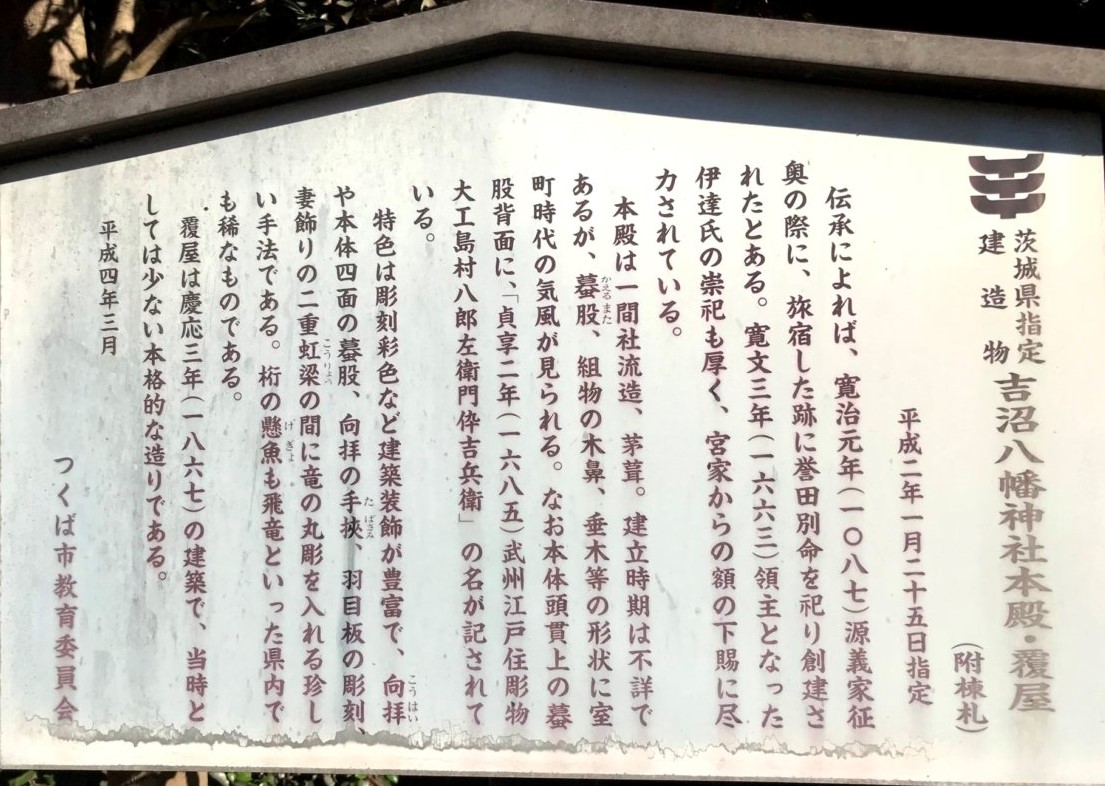 茨城県指定
建造物
吉沼八幡神社本殿・覆屋
(附棟札)
平成二年一月二十五日指定
伝承によれば、寛治元年(一〇八七)源義家征
奥の際に、旅宿した跡に誉田別命を祀り創建さ
れたとある。寛文三年(一六六三)領主となった
伊達氏の崇祀も厚く、宮家からの額の下賜に尽
力されている。
本殿は一間社流造、茅葺。建立時期は不詳で
あるが、蟇股、組物の木鼻、垂木等の形状に室
かえるまた
町時代の気風が見られる。なお本体頭貫上の蟇
股背面に、「貞享二年(一六八五)武州江戸住彫物
大工島村八郎左衛門伜吉兵衛」の名が記されて
いる。
特色は彫刻彩色など建築装飾が豊富で、向拝
こうはい
や本体四面の蟇股、向拝の手挾、羽目板の彫刻、
たばさみ
妻飾りの二重虹梁の間に竜の丸彫を入れる珍し
こうりょう
い手法である。桁の懸魚も飛竜といった県内で
げぎょ
も稀なものである。
覆屋は慶応三年(一八六七)の建築で、当時と
しては少ない本格的な造りである。
平成四年三月
つくば市教育委員会